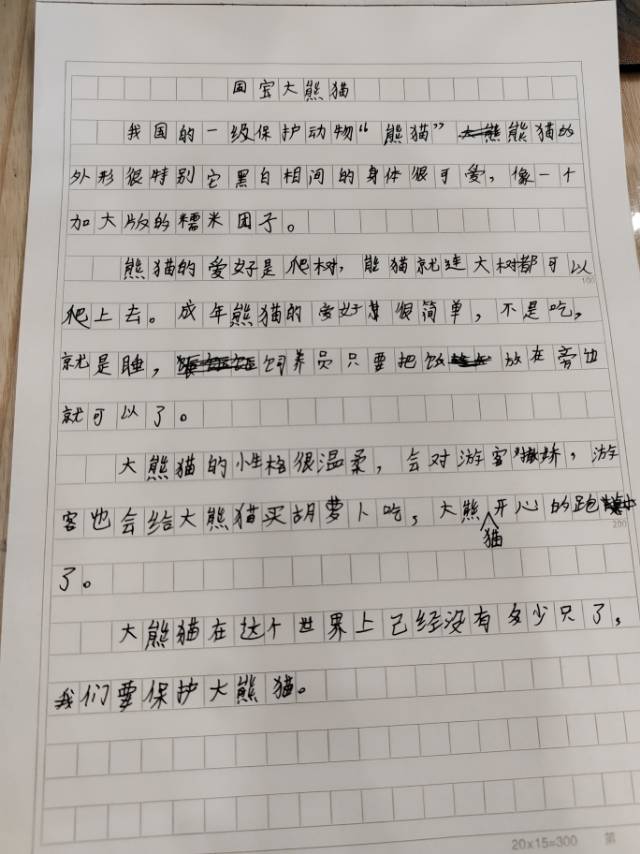 国宝大熊猫
我国的一级保护动物“熊猫”熊猫的
外形很特别它黑白相间的身体很可爱，像一个
加大版的糯米团子。
熊猫的爱好是爬树，熊猫就连大树都可以
爬上去。成年熊猫的爱好很简单，不是吃，
就是睡，饲养员只要把饭放在旁边
就可以了。
大熊猫的性格很温柔，会对游客撒娇，游
客也会给大熊猫买胡萝卜吃，大熊猫开心的跑
了。
大熊猫在这个世界上已经没有多少只了，
我们要保护大熊猫。
100
200
20x15=300 第